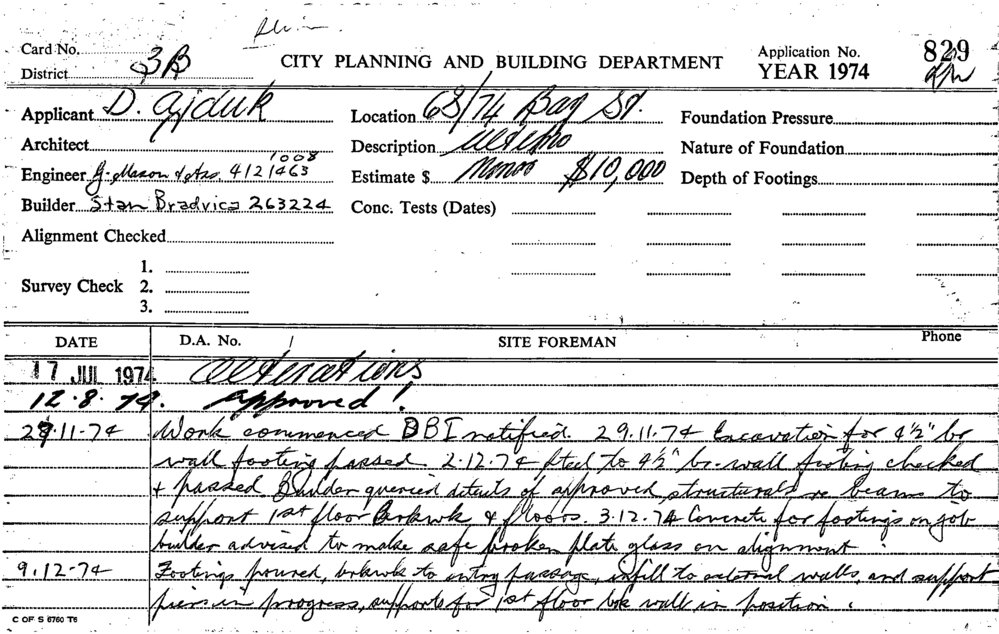 Card No.
District 3B
CITY PLANNING AND BUILDING DEPARTMENT
Application No. 829
YEAR 1974
Applicant D. Ajduk
Location 68/74 Bay St.
Foundation Pressure
Architect
Description
Nature of Foundation
Engineer J. Mason & Ass. 4121463 1008
Estimate $ $10,000
Depth of Footings
Builder Stan Bradvica 263224
Conc. Tests (Dates)
Alignment Checked
Survey Check
1.
2.
3.
DATE D.A. No. SITE FOREMAN Phone
17 JUL 1974 Alterations
12.8.74. approved!
29.11.74 Work commenced DBI notified. 29.11.74 Excavation for 4½" br
wall footing passed 2.12.74 steel to 4½" br. wall footing checked
+ passed Builder queried details of approved structurals re beams to
support 1st floor brkwk & floors. 3.12.74 Concrete for footings on job
builder advised to make safe broken plate glass on alignment.
9.12.74 Footings poured, brkwk to entry passage, infill to external walls, and support
piers in progress, supports for 1st floor brk wall in position.
C OF S 6760 T6